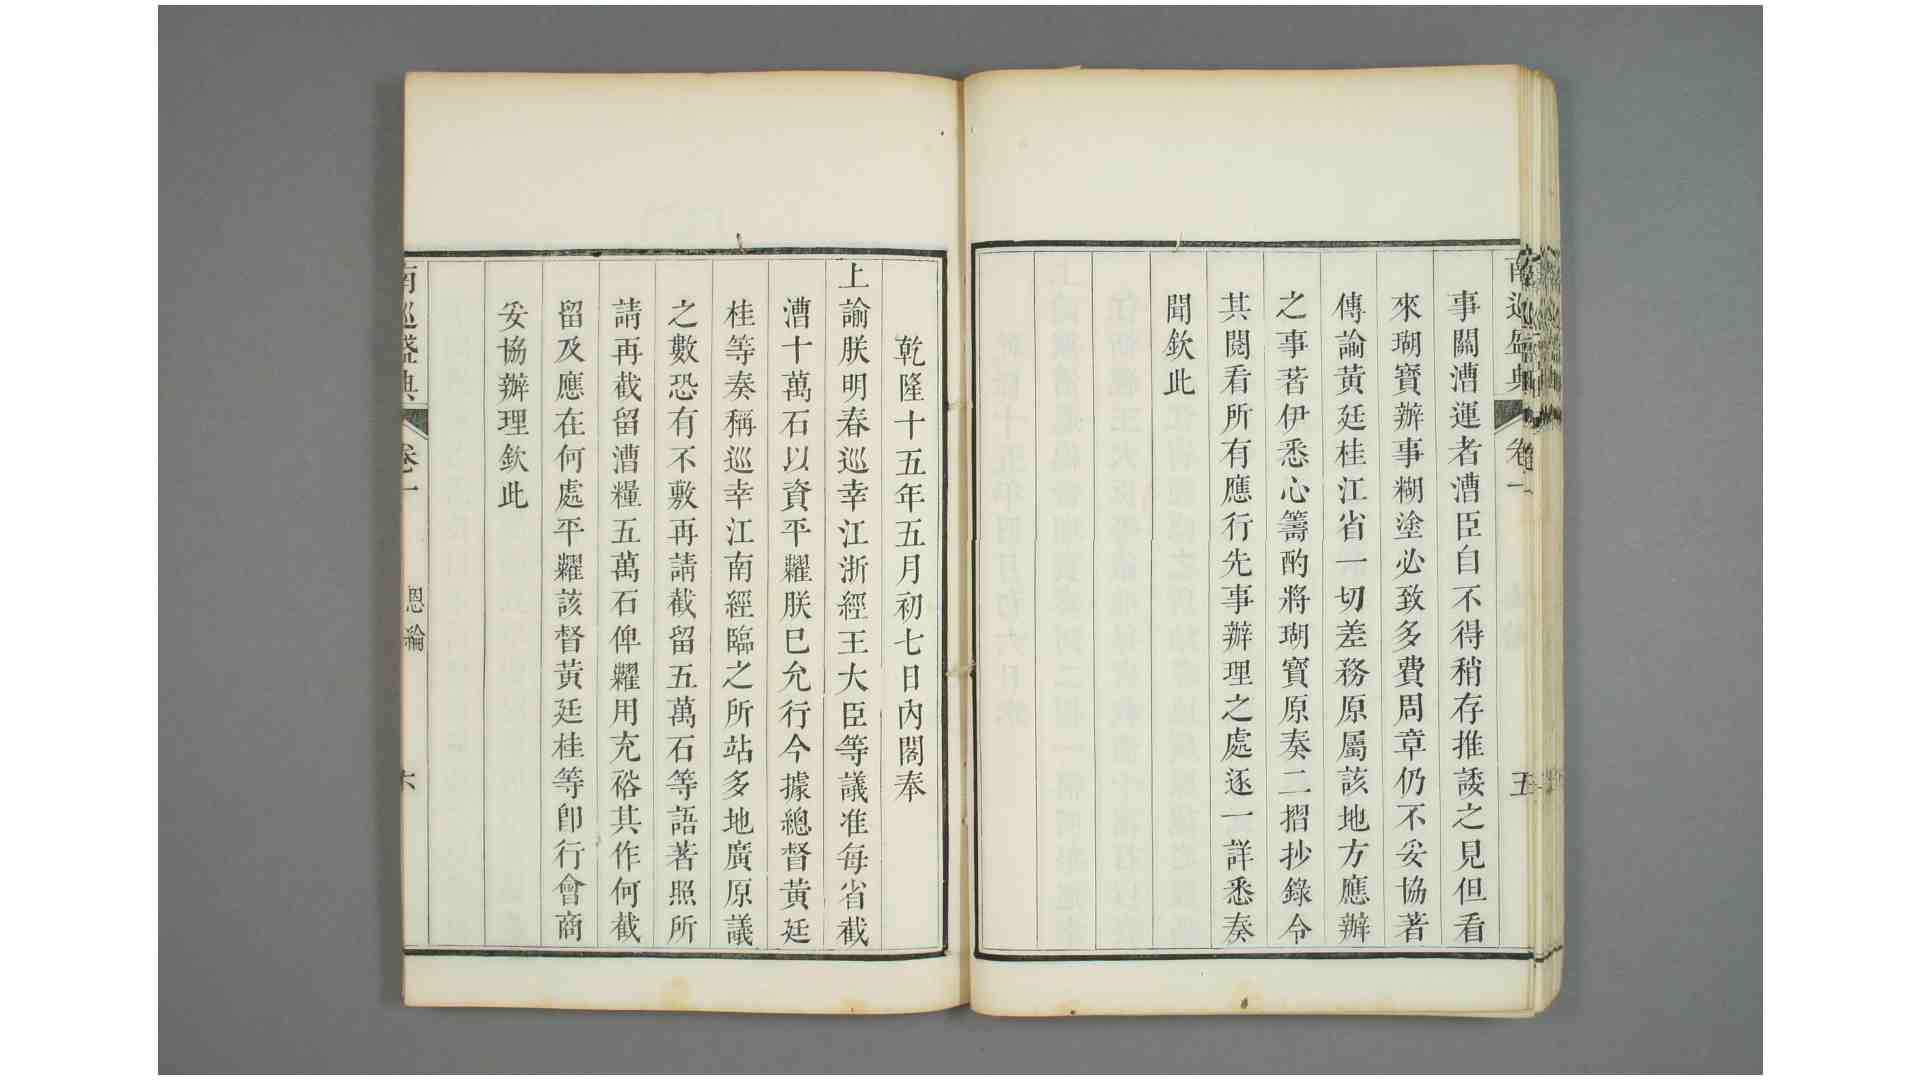 南巡盛典
卷一
五
事關漕運者漕臣自不得稍存推諉之見但看
來瑚寶辦事糊塗必致多費周章仍不妥協著
傳諭黃廷桂江省一切差務原屬該地方應辦
之事著伊悉心籌酌將瑚寶原奏二摺抄錄令
其閱看所有應行先事辦理之處逐一詳悉奏
聞欽此
乾隆十五年五月初七日內閣奉
上諭朕明春巡幸江浙經王大臣等議准每省截
漕十萬石以資平糶朕已允行今據總督黃廷
桂等奏稱巡幸江南經臨之所站多地廣原議
之數恐有不敷再請截留五萬石等語著照所
請再截留漕糧五萬石俾糶用充裕其作何截
留及應在何處平糶該督黃廷桂等卽行會商
妥協辦理欽此
南巡盛典
卷一
恩綸
六